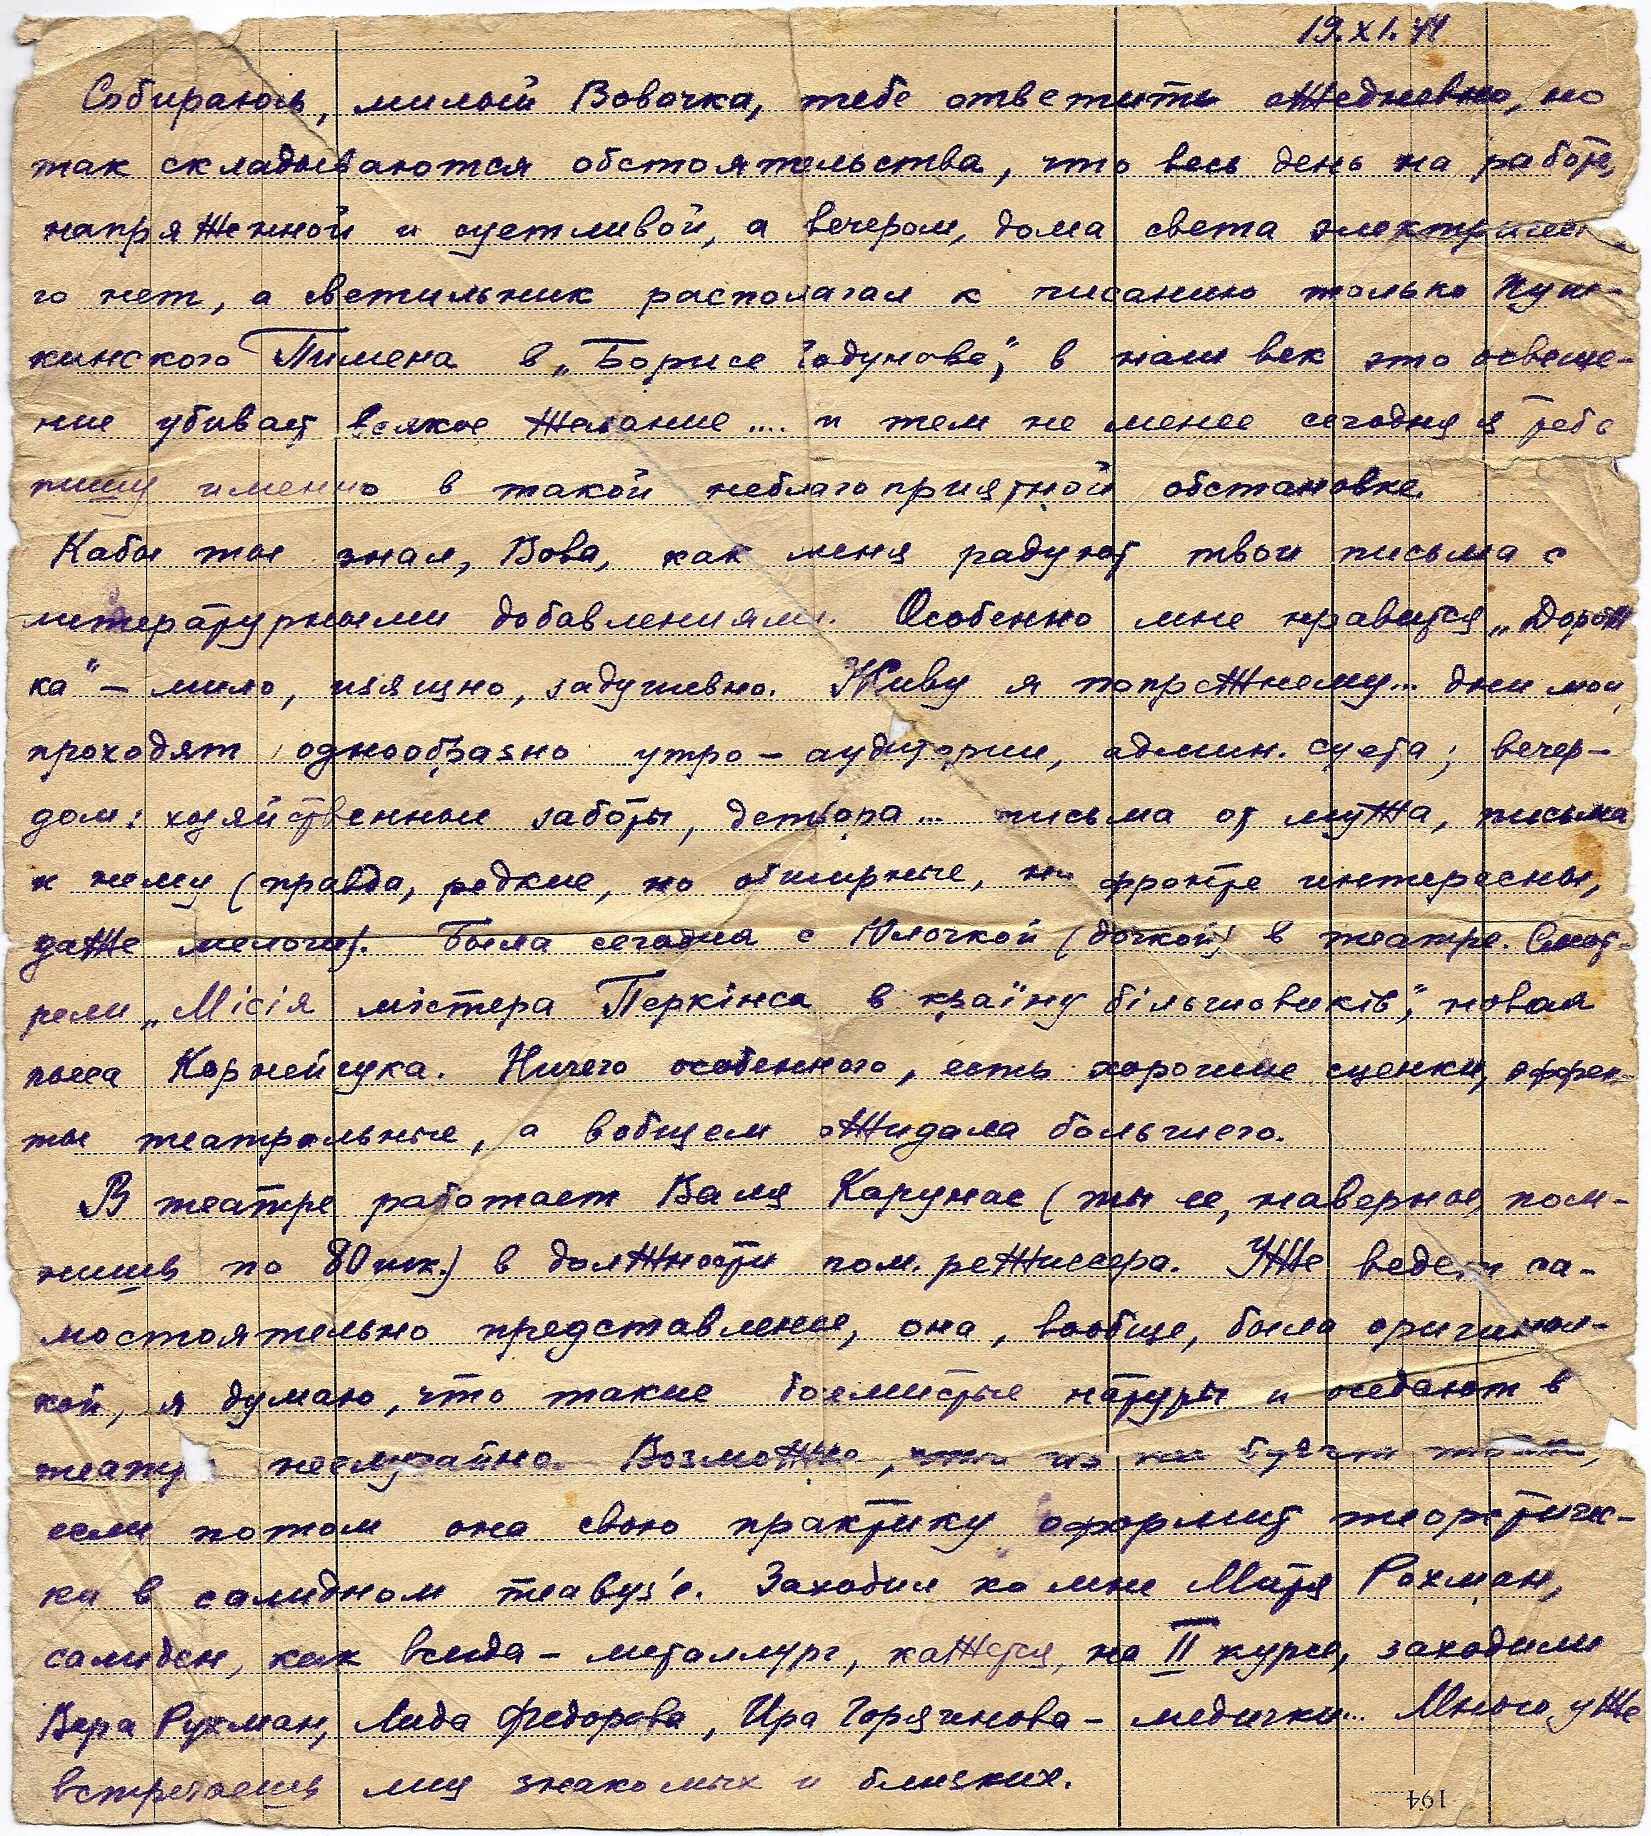 19.XI.44
Собираюсь, милый Вовочка, тебе ответить ежедневно, но
так складываются обстоятельства, что весь день на работе,
напряженной и суетливой, а вечером, дома света электрическо
го нет, а светильник располагал к писанию только Пуш-
кинского Пимена в „Борисе Годунове“, в наш век это освеще-
ние убивает всякое желание.... и тем не менее сегодня я тебе
пишу именно в такой неблагоприятной обстановке.
Кабы ты знал, Вова, как меня радуют твои письма с
литературными добавлениями. Особенно мне нравится „Дорож
ка“ – мило, изящно, задушевно. Живу я попрежнему... дни мои
проходят однообразно утро – аудитории, админ. суета; вечер –
дом: хозяйственные заботы, детвора... письма от мужа, письма
к нему (правда, редкие, но обширные, на фронте интересны,
даже мелочи). Была сегодня с Юлочкой (дочкой) в театре. Смот-
рели „Місія містера Перкінса в країну більшовиків“, новая
пьеса Корнейчука. Ничего особенного, есть хорошие сценки, эффек-
ты театральные, а вобщем ожидала большего.
В театре работает Валя Карунас (ты ее, наверное, пом-
нишь по 80 шк.) в должности пом. режиссера. Уже ведет са-
мостоятельно представление, она, вообще, была оригинал-
кой, я думаю, что такие богемистые натуры и оседают в
театре неслучайно. Возможно, что из нее будет толк,
если потом она свою практику оформит теоретичес-
ки в солидном театвуз'е. Заходил ко мне Митя Рохман,
солиден, как всегда – металлург, кажется, на II курсе, заходили
Вера Рухман, Лида Федорова, Ира Горяинова – медички... Много уже
встречаешь лиц знакомых и близких.
194